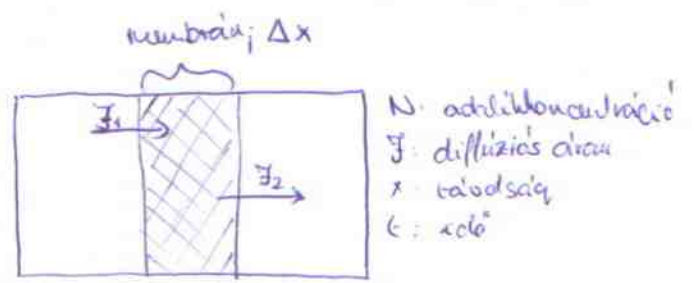 membrán; Δx
J₁
J₂
N: adalékkoncentráció
J: diffúziós áram
x: távolság
t: idő